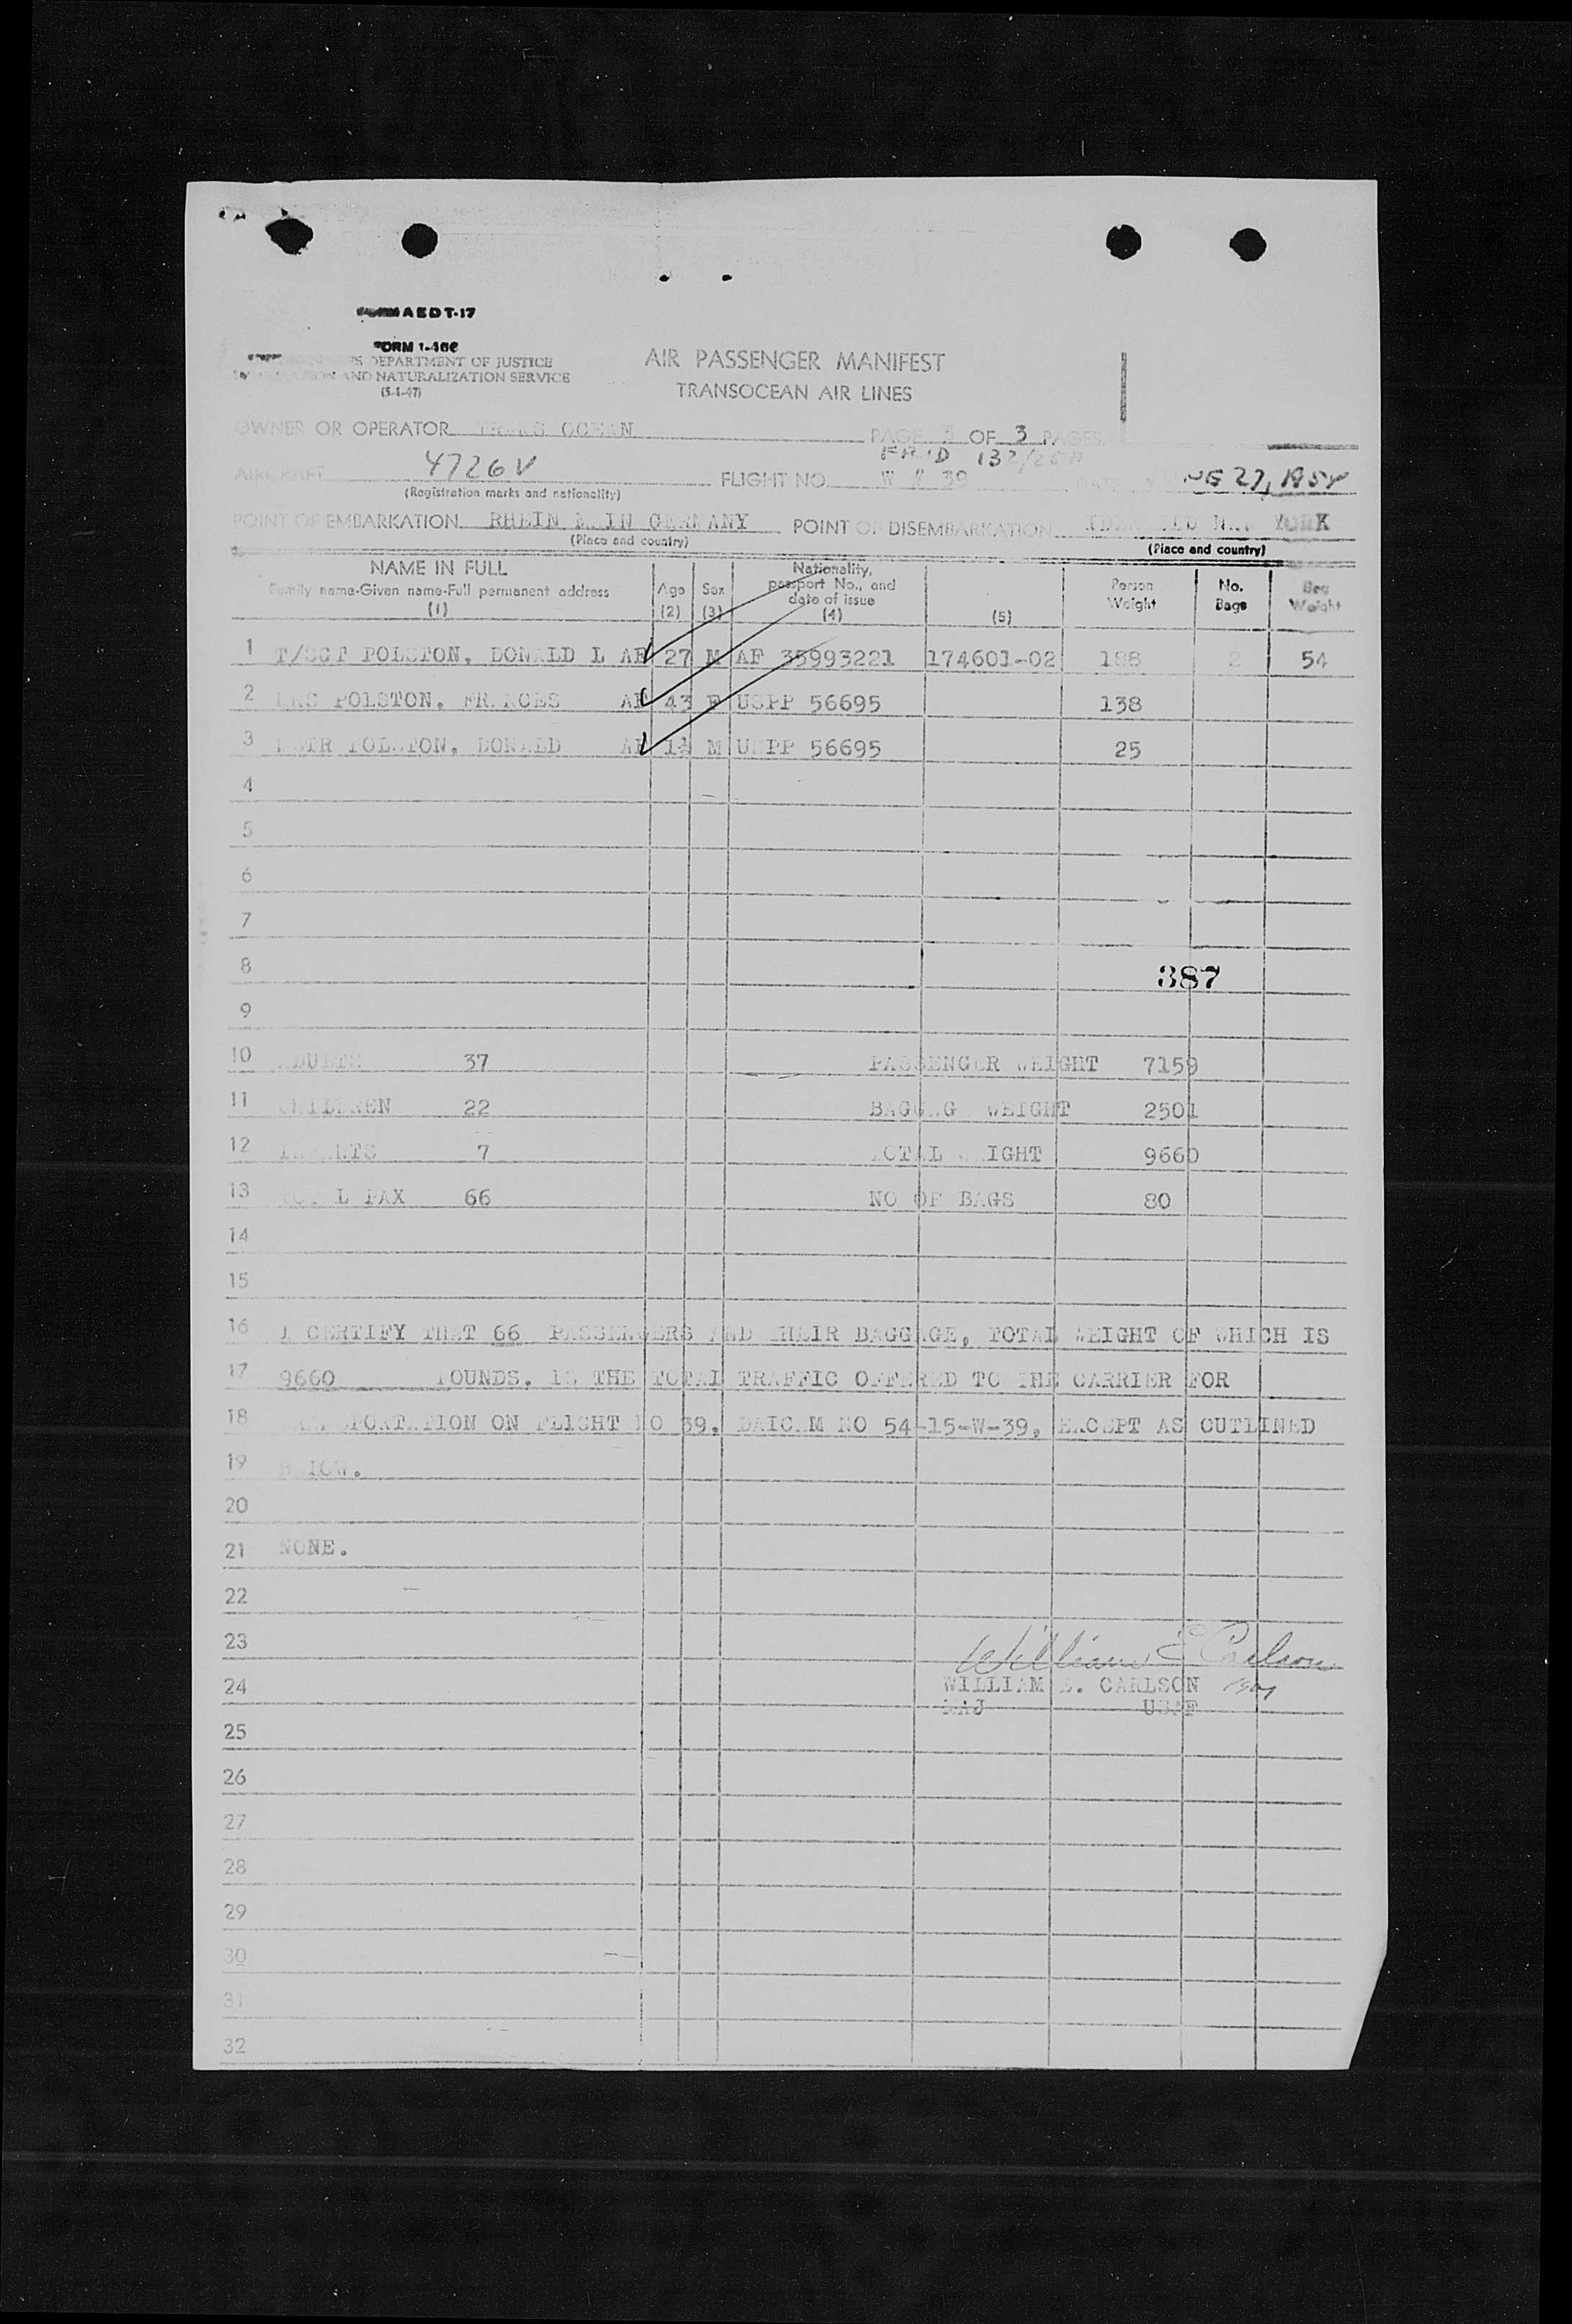 FORM A E D T-17
FORM I-466
DEPARTMENT OF JUSTICE
AND NATURALIZATION SERVICE
(5-1-47)
AIR PASSENGER MANIFEST
TRANSOCEAN AIR LINES
OWNER OR OPERATOR TRANS OCEAN PAGE 3 OF 3 PAGES
AIRCRAFT 4726V FLIGHT NO. W # 39 DATE 27, 1954
(Registration marks and nationality)
POINT OF EMBARKATION RHEIN MAIN GERMANY POINT OF DISEMBARKATION IDLEWILD NEW YORK
(Place and country) (Place and country)
NAME IN FULL
Family name-Given name-Full permanent address
(1)
Age
(2)
Sex
(3)
Nationality,
passport No., and
date of issue
(4)
(5)
Person
Weight
No.
Bags
Bag
Weight
1 T/SGT POLSTON, DONALD L AF 27 M AF 35993221 174601-02 188 2 54
2 MRS POLSTON, FRANCES AF 43 F USPP 56695 138
3 MSTR POLSTON, DONALD AF M USPP 56695 25
4
5
6
7
8
387
9
10 ADULTS 37 PASSENGER WEIGHT 7159
11 CHILDREN 22 BAGGAGE WEIGHT 2501
12 INFANTS 7 TOTAL WEIGHT 9660
13 TOTAL PAX 66 NO OF BAGS 80
14
15
16 I CERTIFY THAT 66 PASSENGERS AND THEIR BAGGAGE, TOTAL WEIGHT OF WHICH IS
17 9660 POUNDS, IS THE TOTAL TRAFFIC OFFERED TO THE CARRIER FOR
18 TRANSPORTATION ON FLIGHT NO 39, DAICAM NO 54-15-W-39, EXCEPT AS OUTLINED
19 BELOW.
20
21 NONE.
22
23 William E Carlson
24 WILLIAM E. CARLSON
MAJ USAF
25
26
27
28
29
30
31
32